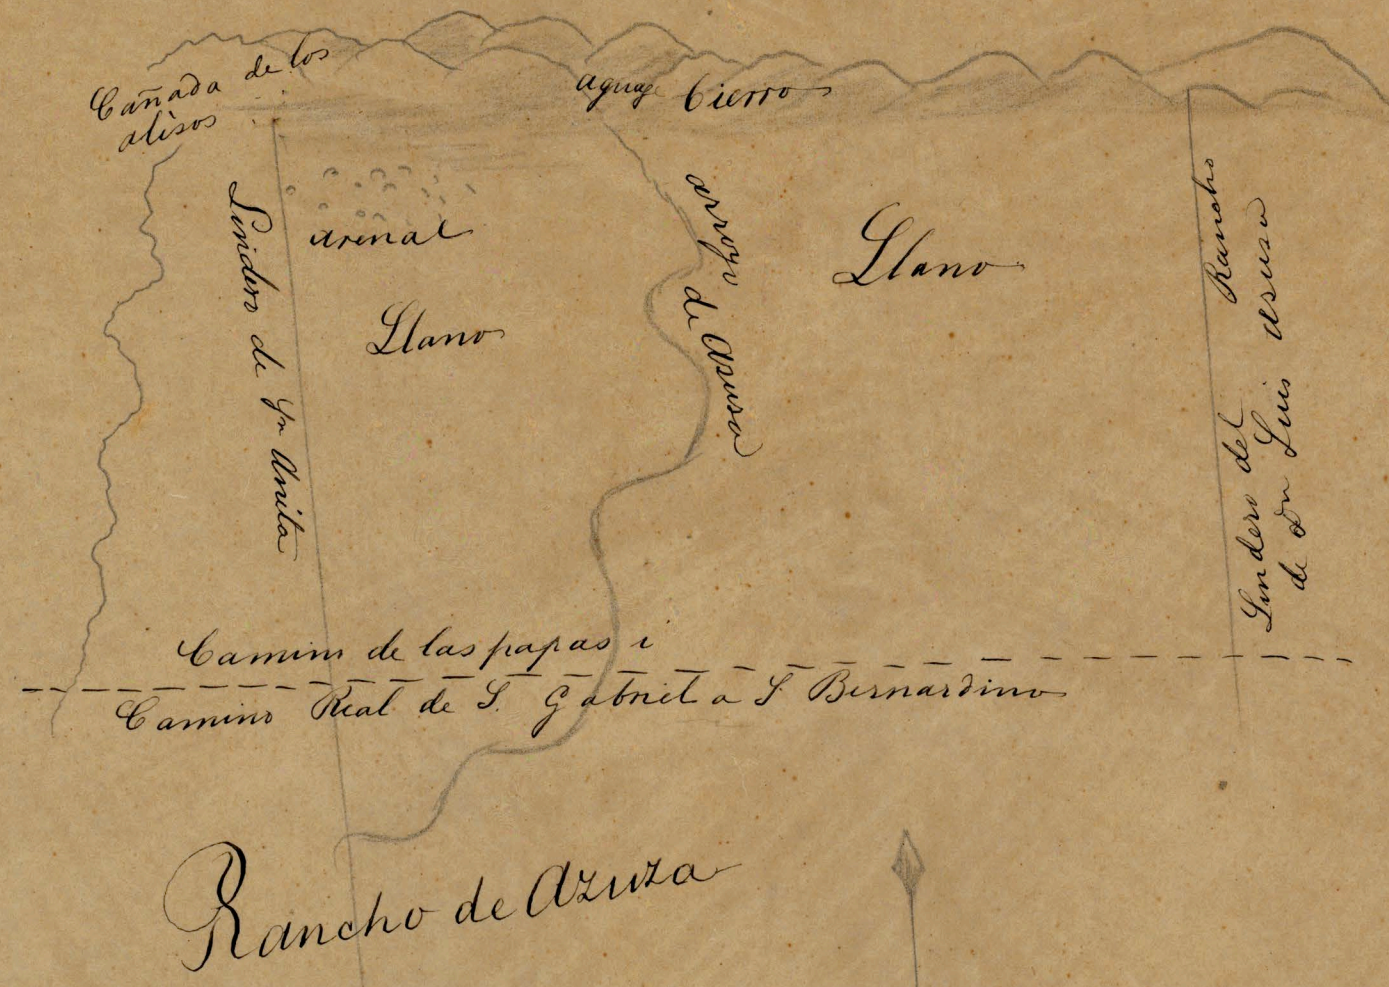 Cañada de los
alisos
aguage Cierro
Lindero de Sn Anita
arenal
Llano
arroyo de asusa
Llano
Lindero del Rancho
de Dn Luis asusa
Camino de las papas i
Camino Real de S. Gabriel a S. Bernardino
Rancho de Azuza